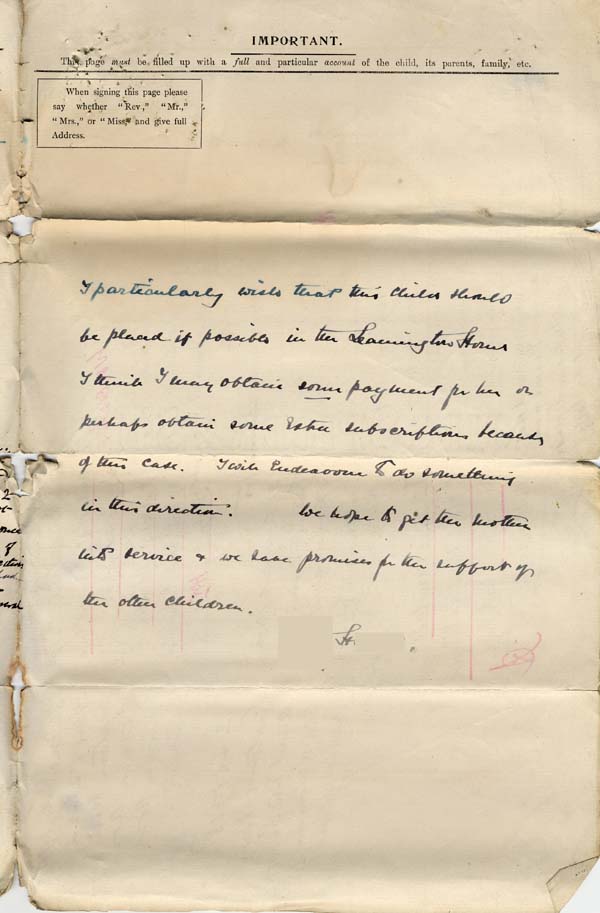 IMPORTANT.
This page must be filled up with a full and particular account of the child, its parents, family, etc.
When signing this page please
say whether "Rev," "Mr.,"
"Mrs.," or "Miss," and give full
Address.
I particularly wish that this child should
be placed if possible in the Leamington Home
I think I may obtain some payment for her or
perhaps obtain some extra subscriptions because
of this case. I will Endeavour to do something
in this direction. We hope to get the mother
into service & we have promises for the support of
the other children.
H.